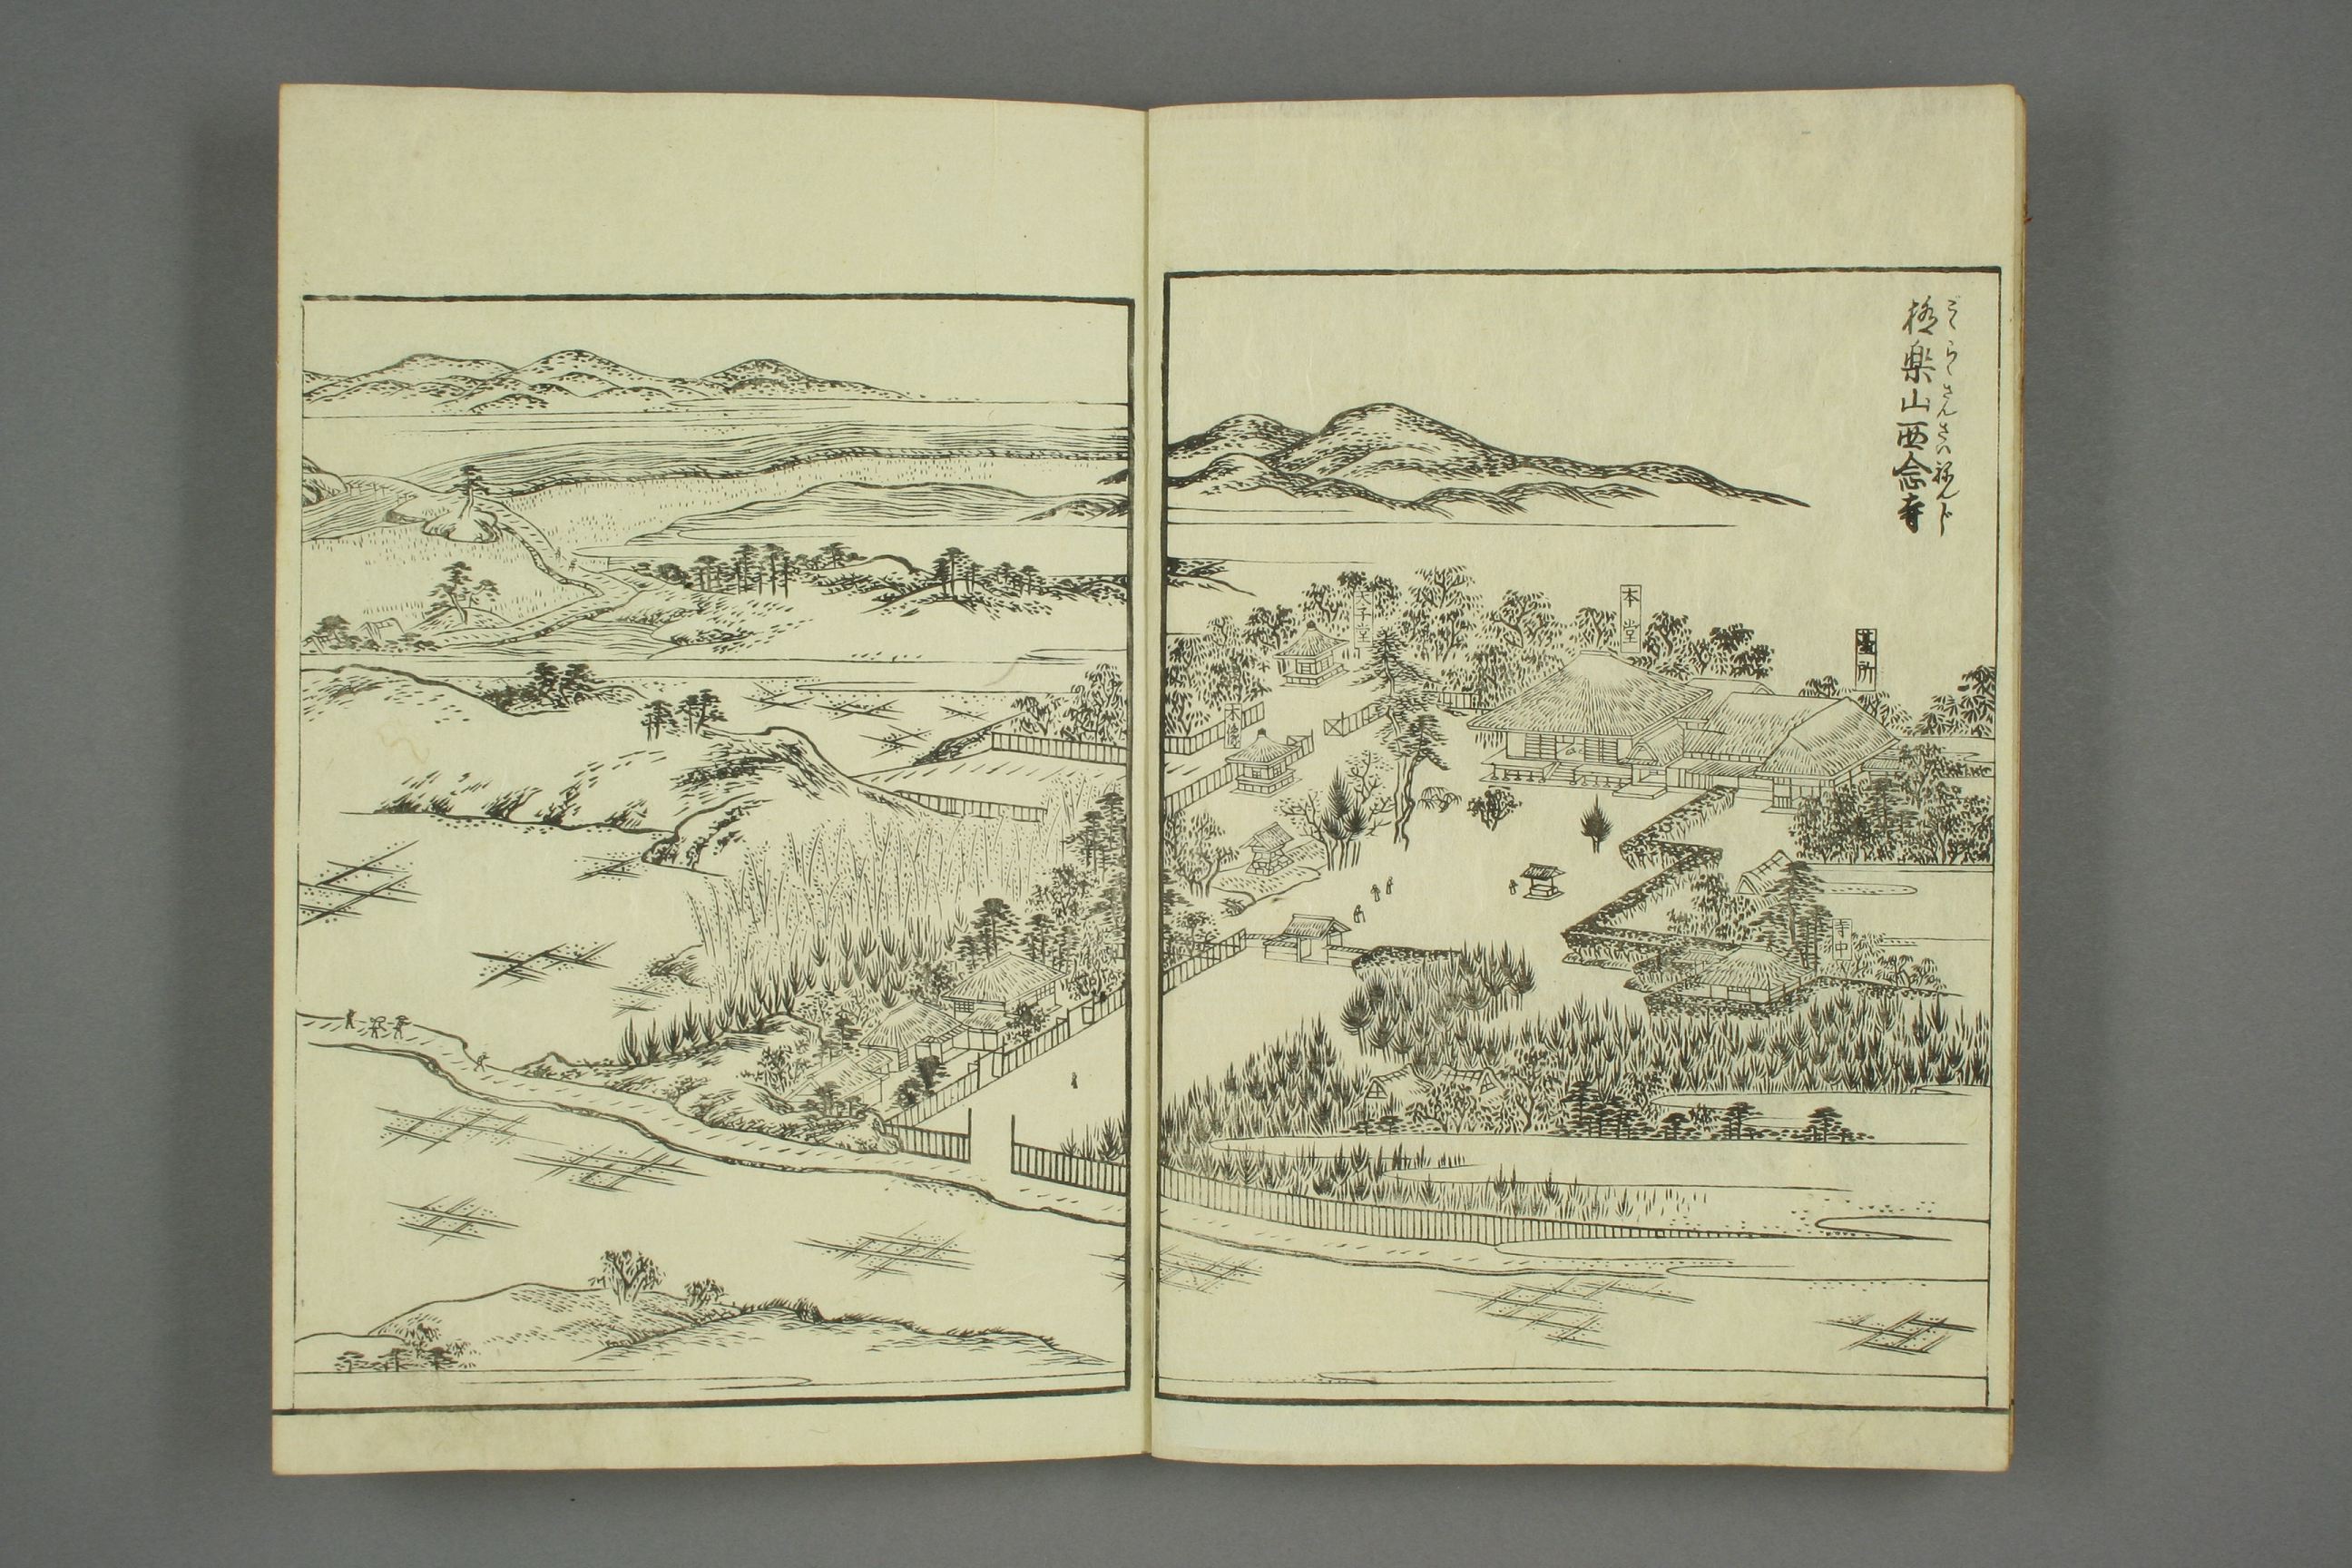 ごくらくさんさいねんじ
極楽山西念寺
臺所
本堂
太子堂
寺中